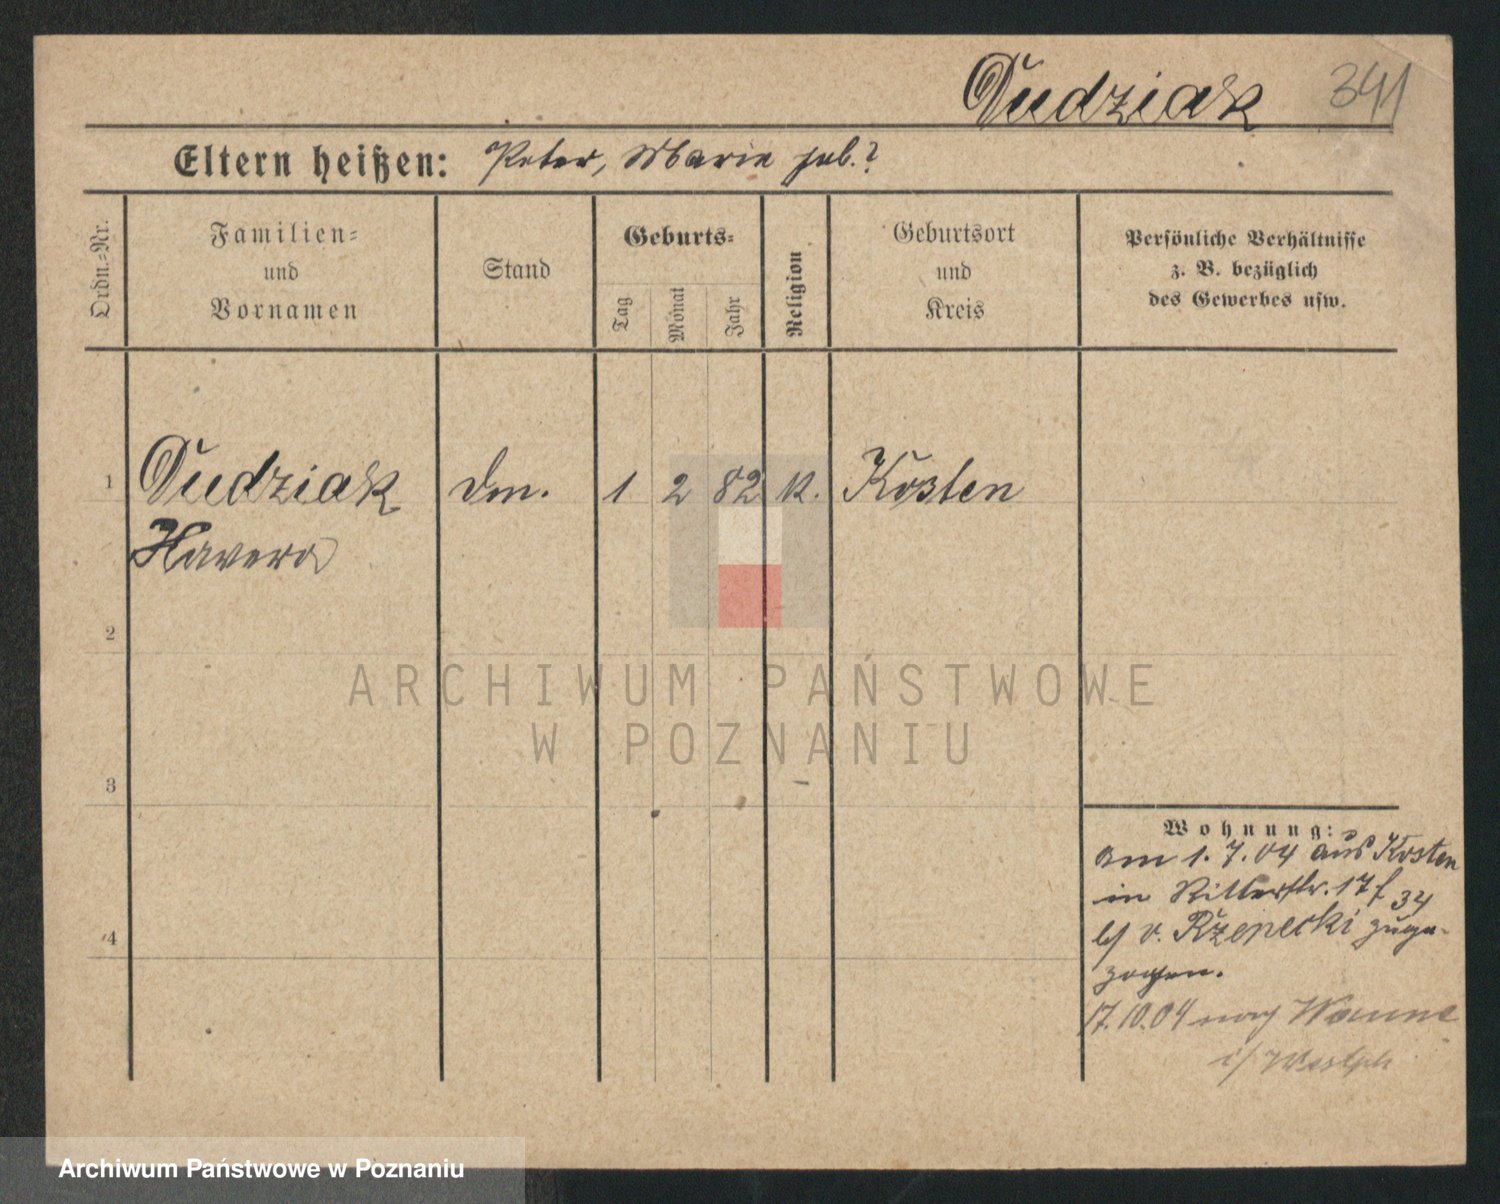 Dudziak 341
Eltern heißen: Peter, Marie geb.?
Ordn.-Nr.
Familien-
und
Vornamen
Stand
Geburts-
Tag
Monat
Jahr
Religion
Geburtsort
und
Kreis
Persönliche Verhältnisse
z. B. bezüglich
des Gewerbes usw.
1 Dudziak 1 2 82 K. Kosten
2
3
4
Wohnung:
am 1. 7. 04 aus Kosten
in Ritterstr. 17 34
b/ v. Rzepecki zuge-
zogen.
17.10.04 nach Wanne
i/ Westph
ARCHIWUM PAŃSTWOWE
W POZNANIU
Archiwum Państwowe w Poznaniu